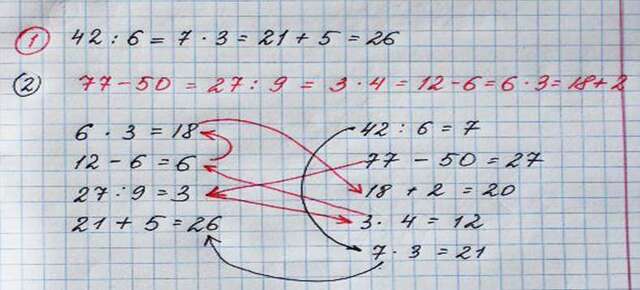 1 42 : 6 = 7 · 3 = 21 + 5 = 26
2 77 - 50 = 27 : 9 = 3 · 4 = 12 - 6 = 6 · 3 = 18 + 2
6 · 3 = 18 42 : 6 = 7
12 - 6 = 6 77 - 50 = 27
27 : 9 = 3 18 + 2 = 20
21 + 5 = 26 3 · 4 = 12
7 · 3 = 21